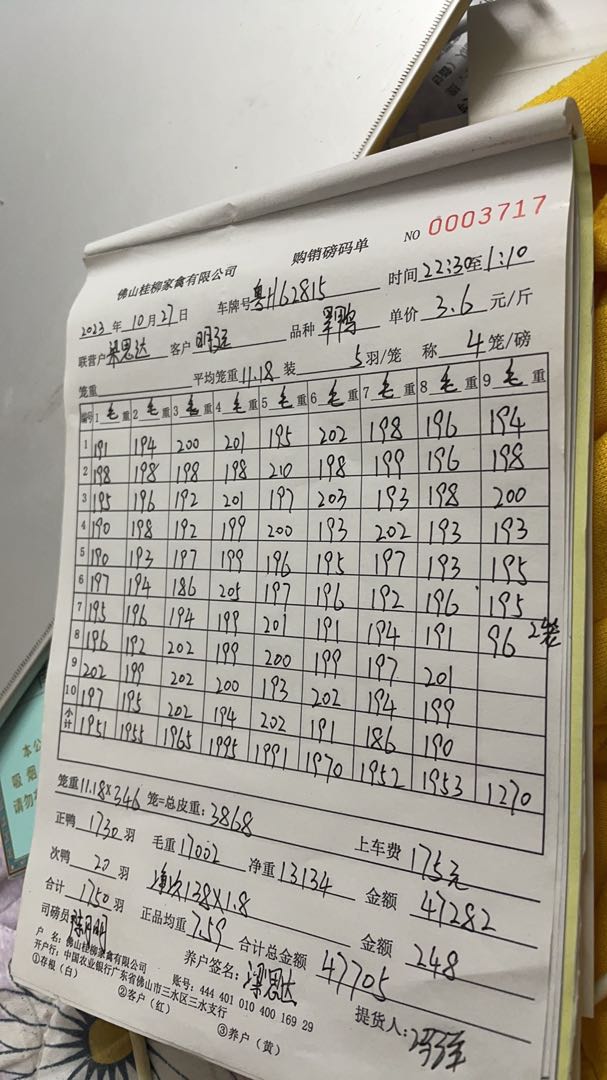 NO 0003717
佛山桂柳家禽有限公司 购销磅码单
2023年10月27日 车牌号 粤H62815 时间 22:30至1:10
联营户 梁思达 客户 明强 品种 单价 3.6 元/斤
笼重 平均笼重 11.18 装 5 羽/笼 称 4 笼/磅
编号 1 毛重 2 毛重 3 毛重 4 毛重 5 毛重 6 毛重 7 毛重 8 毛重 9 毛重
1 191 194 200 201 195 202 198 196 194
2 198 198 198 198 210 198 199 196 198
3 195 196 192 201 197 203 193 198 200
4 190 198 192 199 200 193 202 193 193
5 190 193 197 199 196 195 197 193 195
6 197 194 186 205 197 196 192 196 195
7 195 196 194 199 201 191 194 191 96 2笼
8 196 192 202 199 200 199 197 201
9 202 199 202 200 193 202 194 199
10 197 195 202 194 202 191 186 190
小计 1951 1955 1965 1995 1991 1970 1952 1953 1270
笼重 11.18×346 笼=总皮重: 3868 上车费 175元
正鸭 1730 羽 毛重 17002 净重 13134 金额 47282
次鸭 20 羽 净次138×1.8 金额 248
合计 1750 羽 正品均重 7.59 合计总金额 47705
司磅员 养户签名: 梁思达 提货人:
户 名: 佛山桂柳家禽有限公司 账号: 444 401 010 400 169 29
开户行: 中国农业银行广东省佛山市三水区三水支行
①存根（白） ②客户（红） ③养户（黄）
本公
吸烟
请勿